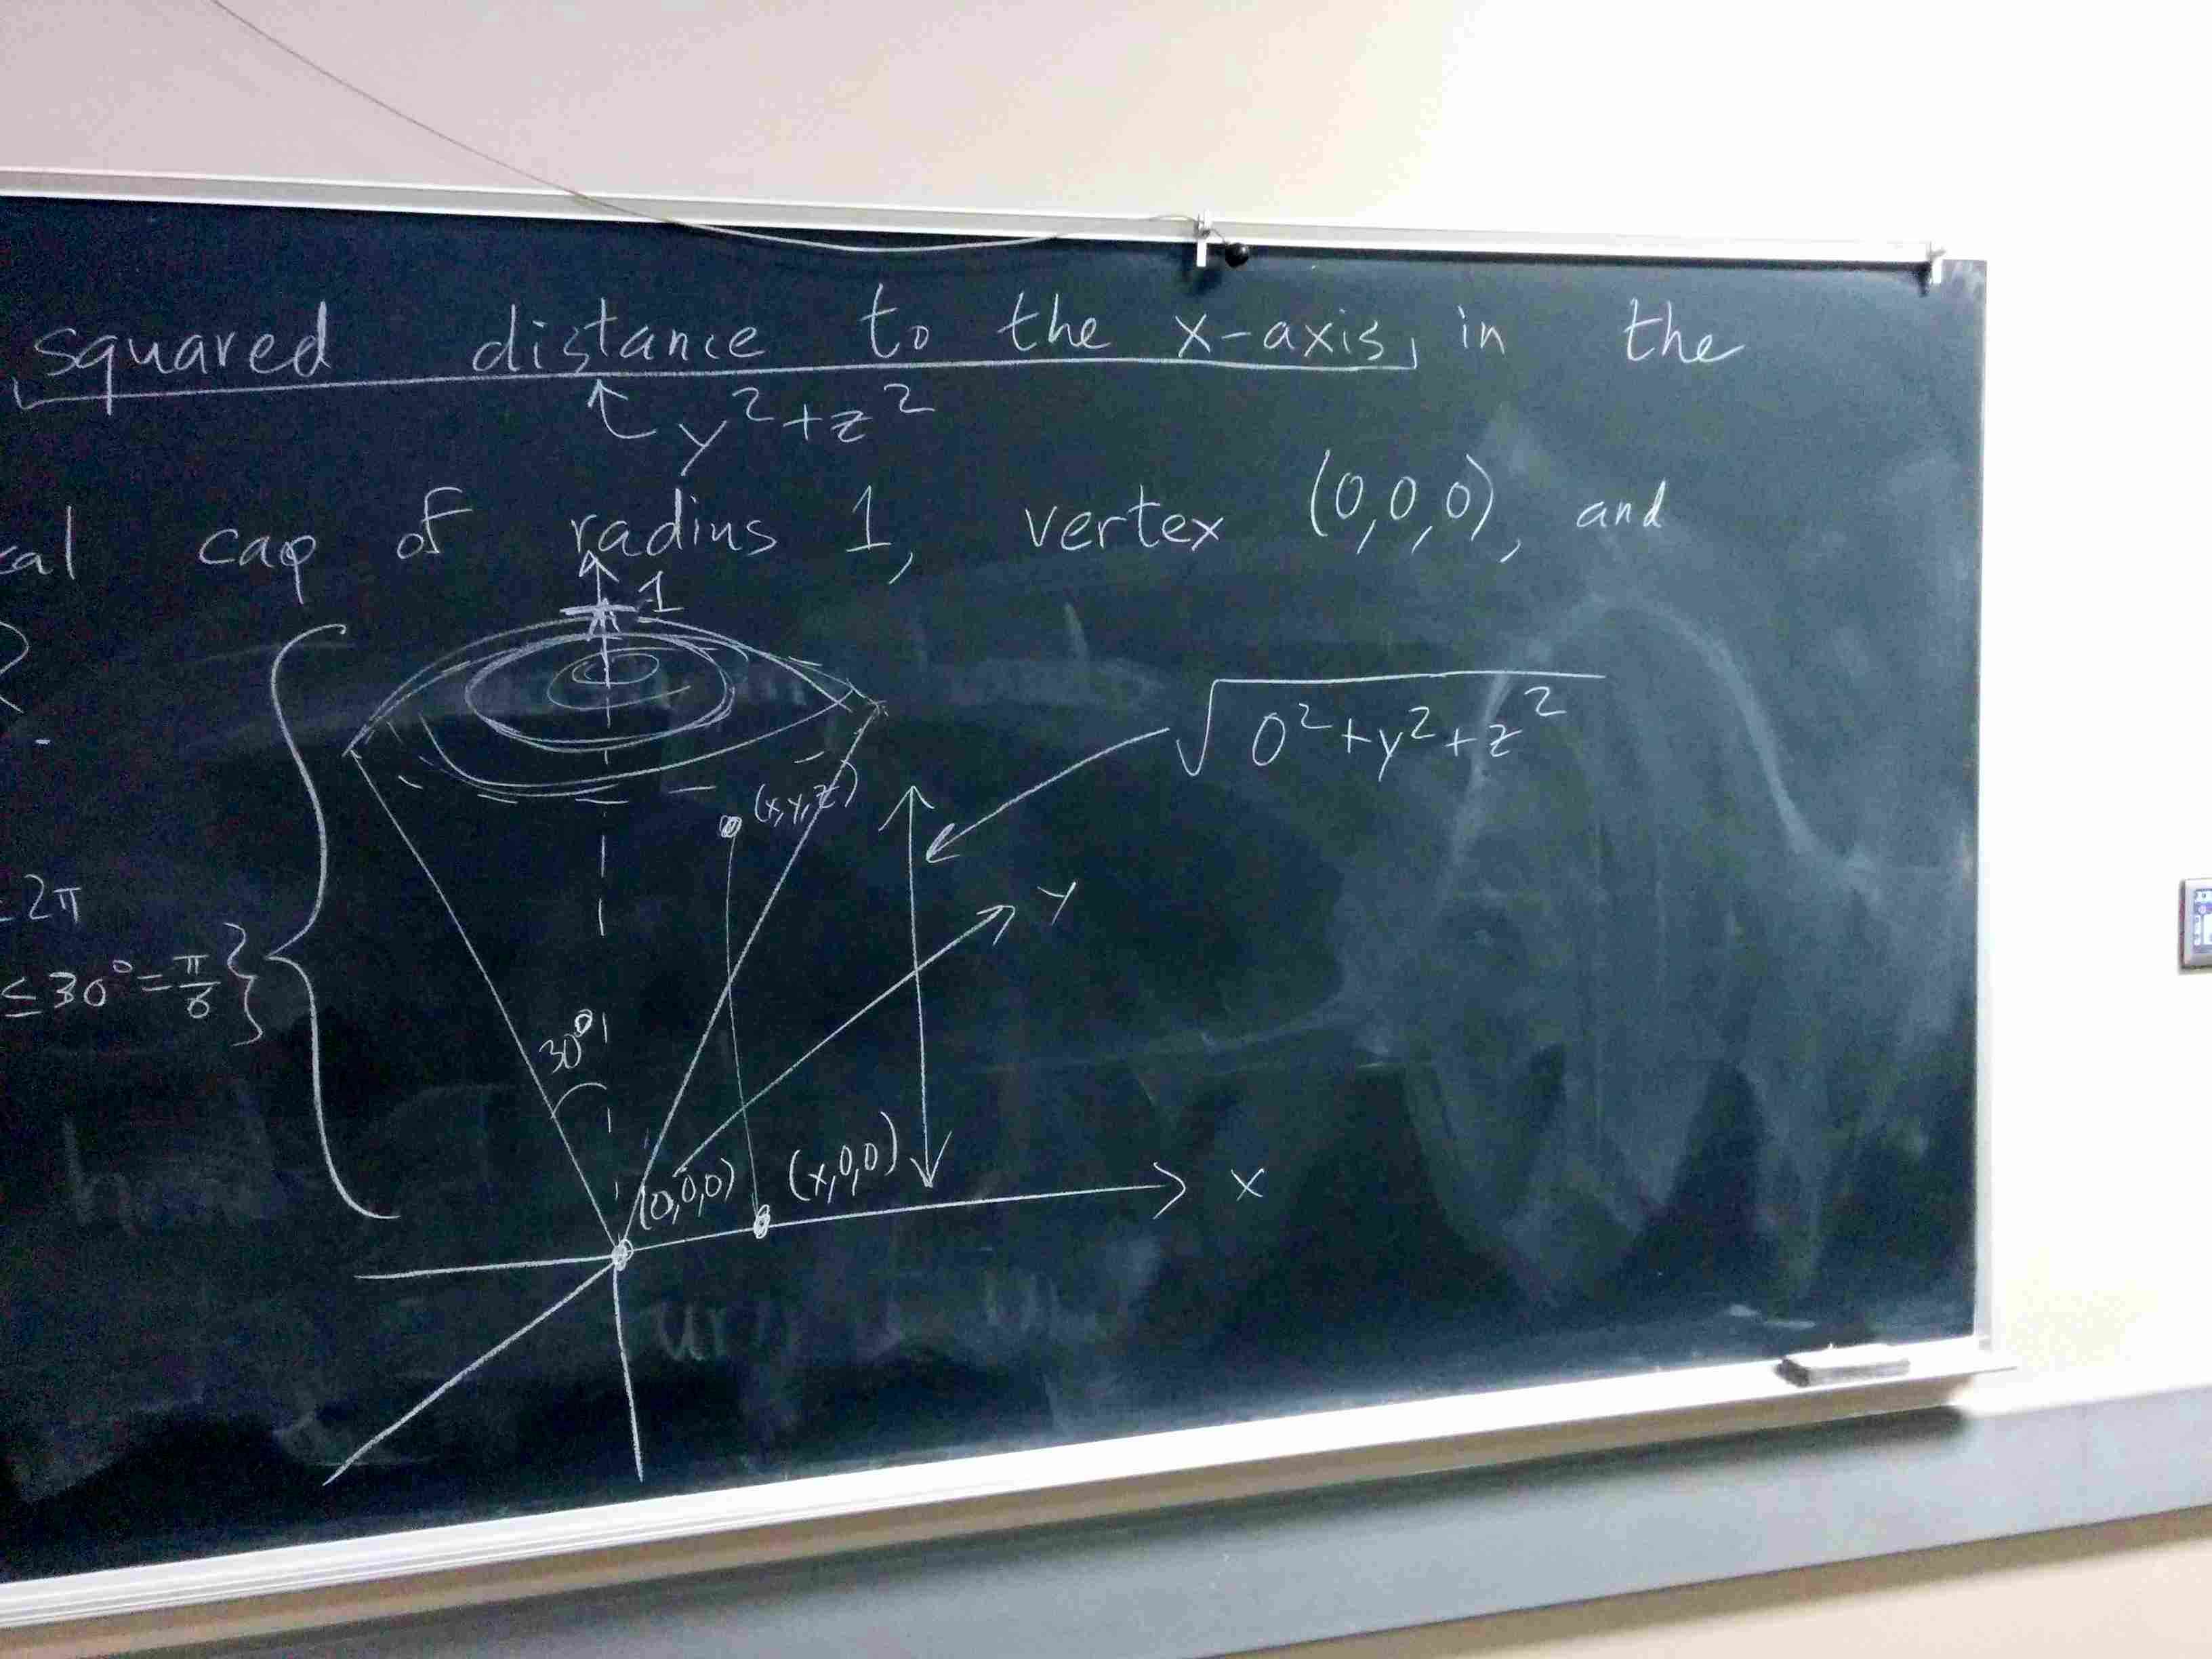 squared distance to the x-axis, in the
y²+z²
cap of radius 1, vertex (0,0,0), and
1
√(0²+y²+z²)
(x,y,z)
y
2π
≤30°=π/6}
30°
(0,0,0)
(x,0,0)
x